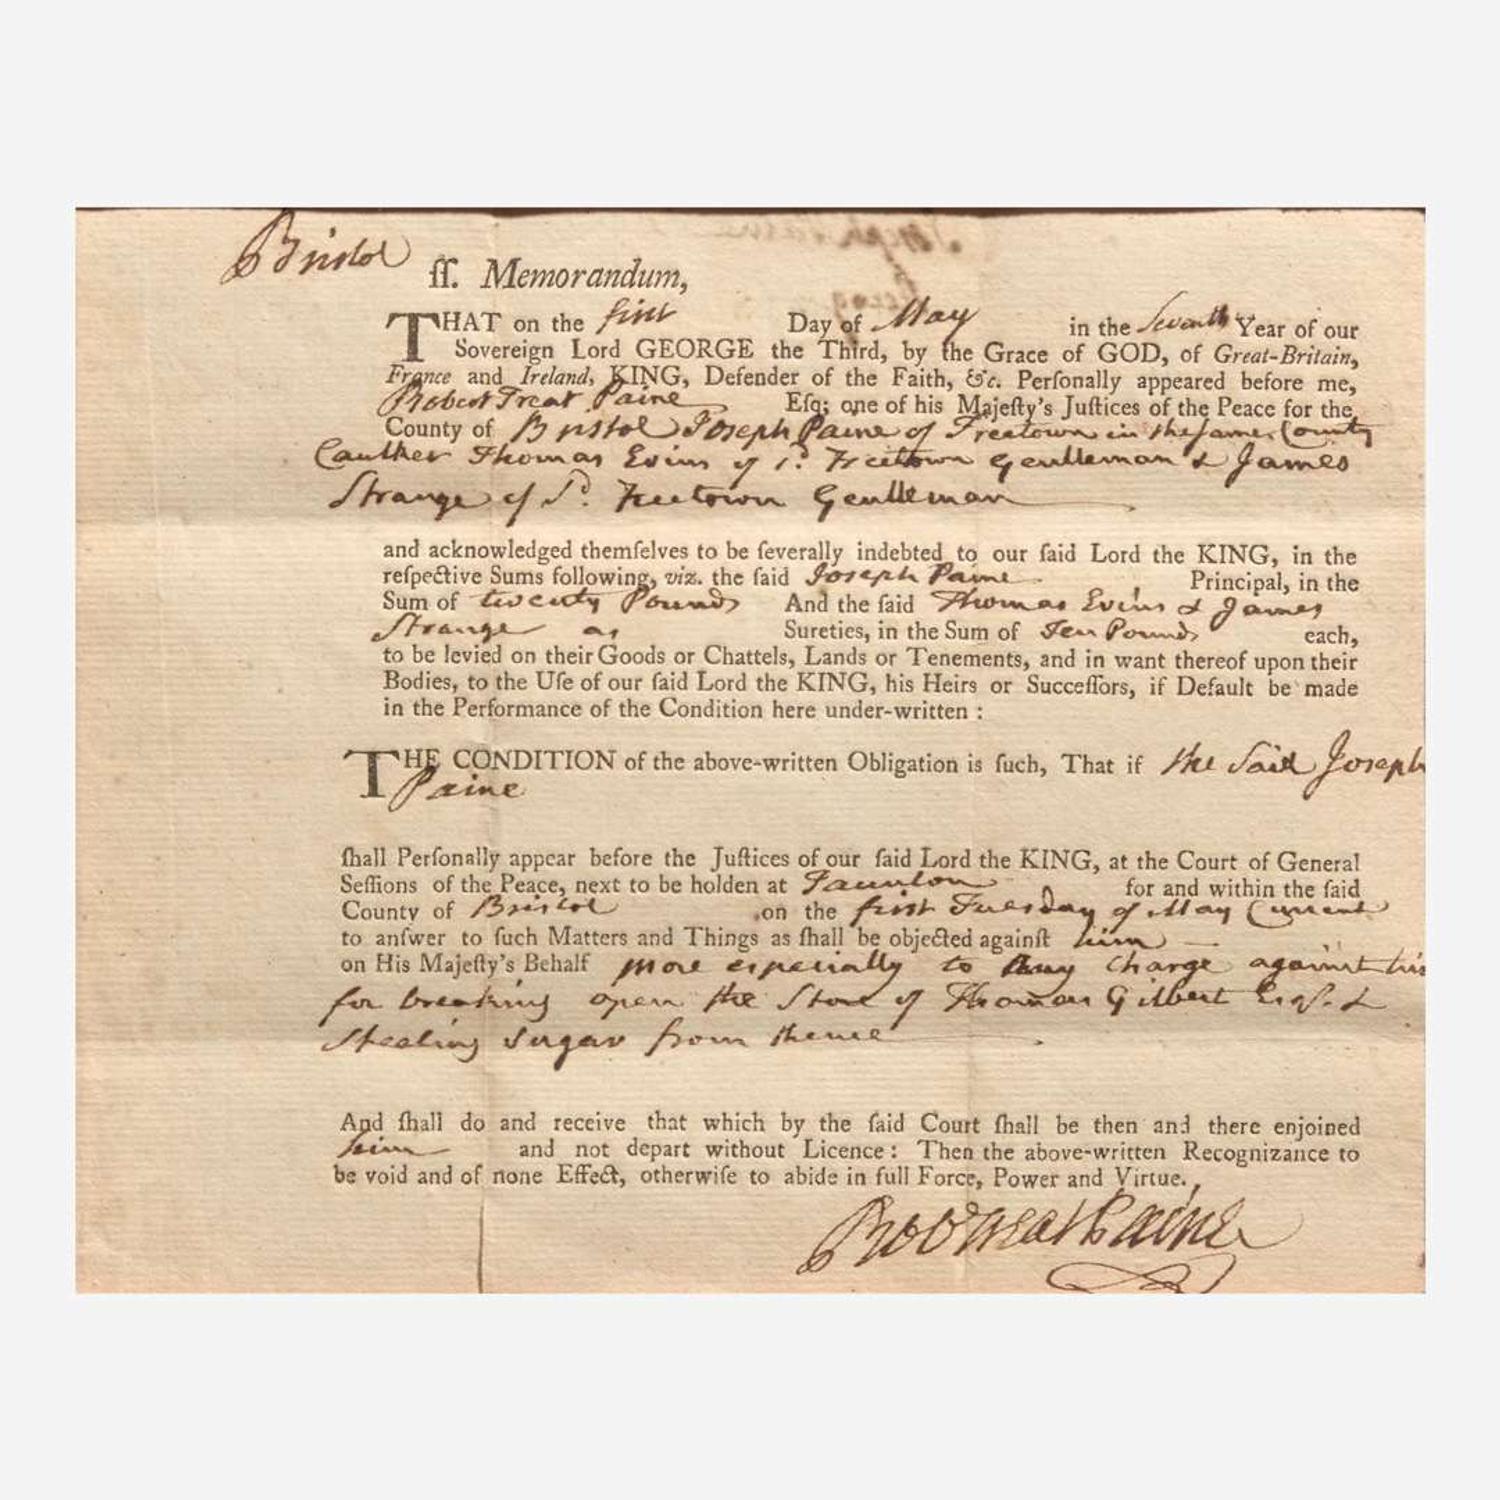 Bristol
ſſ. Memorandum,
THAT on the first Day of May in the Seventh Year of our
Sovereign Lord GEORGE the Third, by the Grace of GOD, of Great-Britain,
France and Ireland, KING, Defender of the Faith, &c. Perſonally appeared before me,
Robert Treat Paine Eſq; one of his Majeſty's Juſtices of the Peace for the
County of Bristol Joseph Paine of Freetown in the same County
Caulker Thomas Evins of sd. Freetown Gentleman & James
Strange of Sd. Freetown Gentleman
and acknowledged themſelves to be ſeverally indebted to our ſaid Lord the KING, in the
reſpective Sums following, viz. the ſaid Joseph Paine Principal, in the
Sum of twenty Pounds And the ſaid Thomas Evins & James
Strange as Sureties, in the Sum of Ten Pounds each,
to be levied on their Goods or Chattels, Lands or Tenements, and in want thereof upon their
Bodies, to the Uſe of our ſaid Lord the KING, his Heirs or Succeſſors, if Default be made
in the Performance of the Condition here under-written :
THE CONDITION of the above-written Obligation is ſuch, That if the Said Joseph
Paine
ſhall Perſonally appear before the Juſtices of our ſaid Lord the KING, at the Court of General
Seſſions of the Peace, next to be holden at Taunton for and within the ſaid
County of Bristol on the first Tuesday of May Current
to anſwer to ſuch Matters and Things as ſhall be objected againſt him
on His Majeſty's Behalf more especially to any Charge against
for breaking open the Store of Thomas Gilbert Esqr. &
Stealing Sugar from thence
And ſhall do and receive that which by the ſaid Court ſhall be then and there enjoined
him and not depart without Licence : Then the above-written Recognizance to
be void and of none Effect, otherwiſe to abide in full Force, Power and Virtue.
Robt Treat Paine